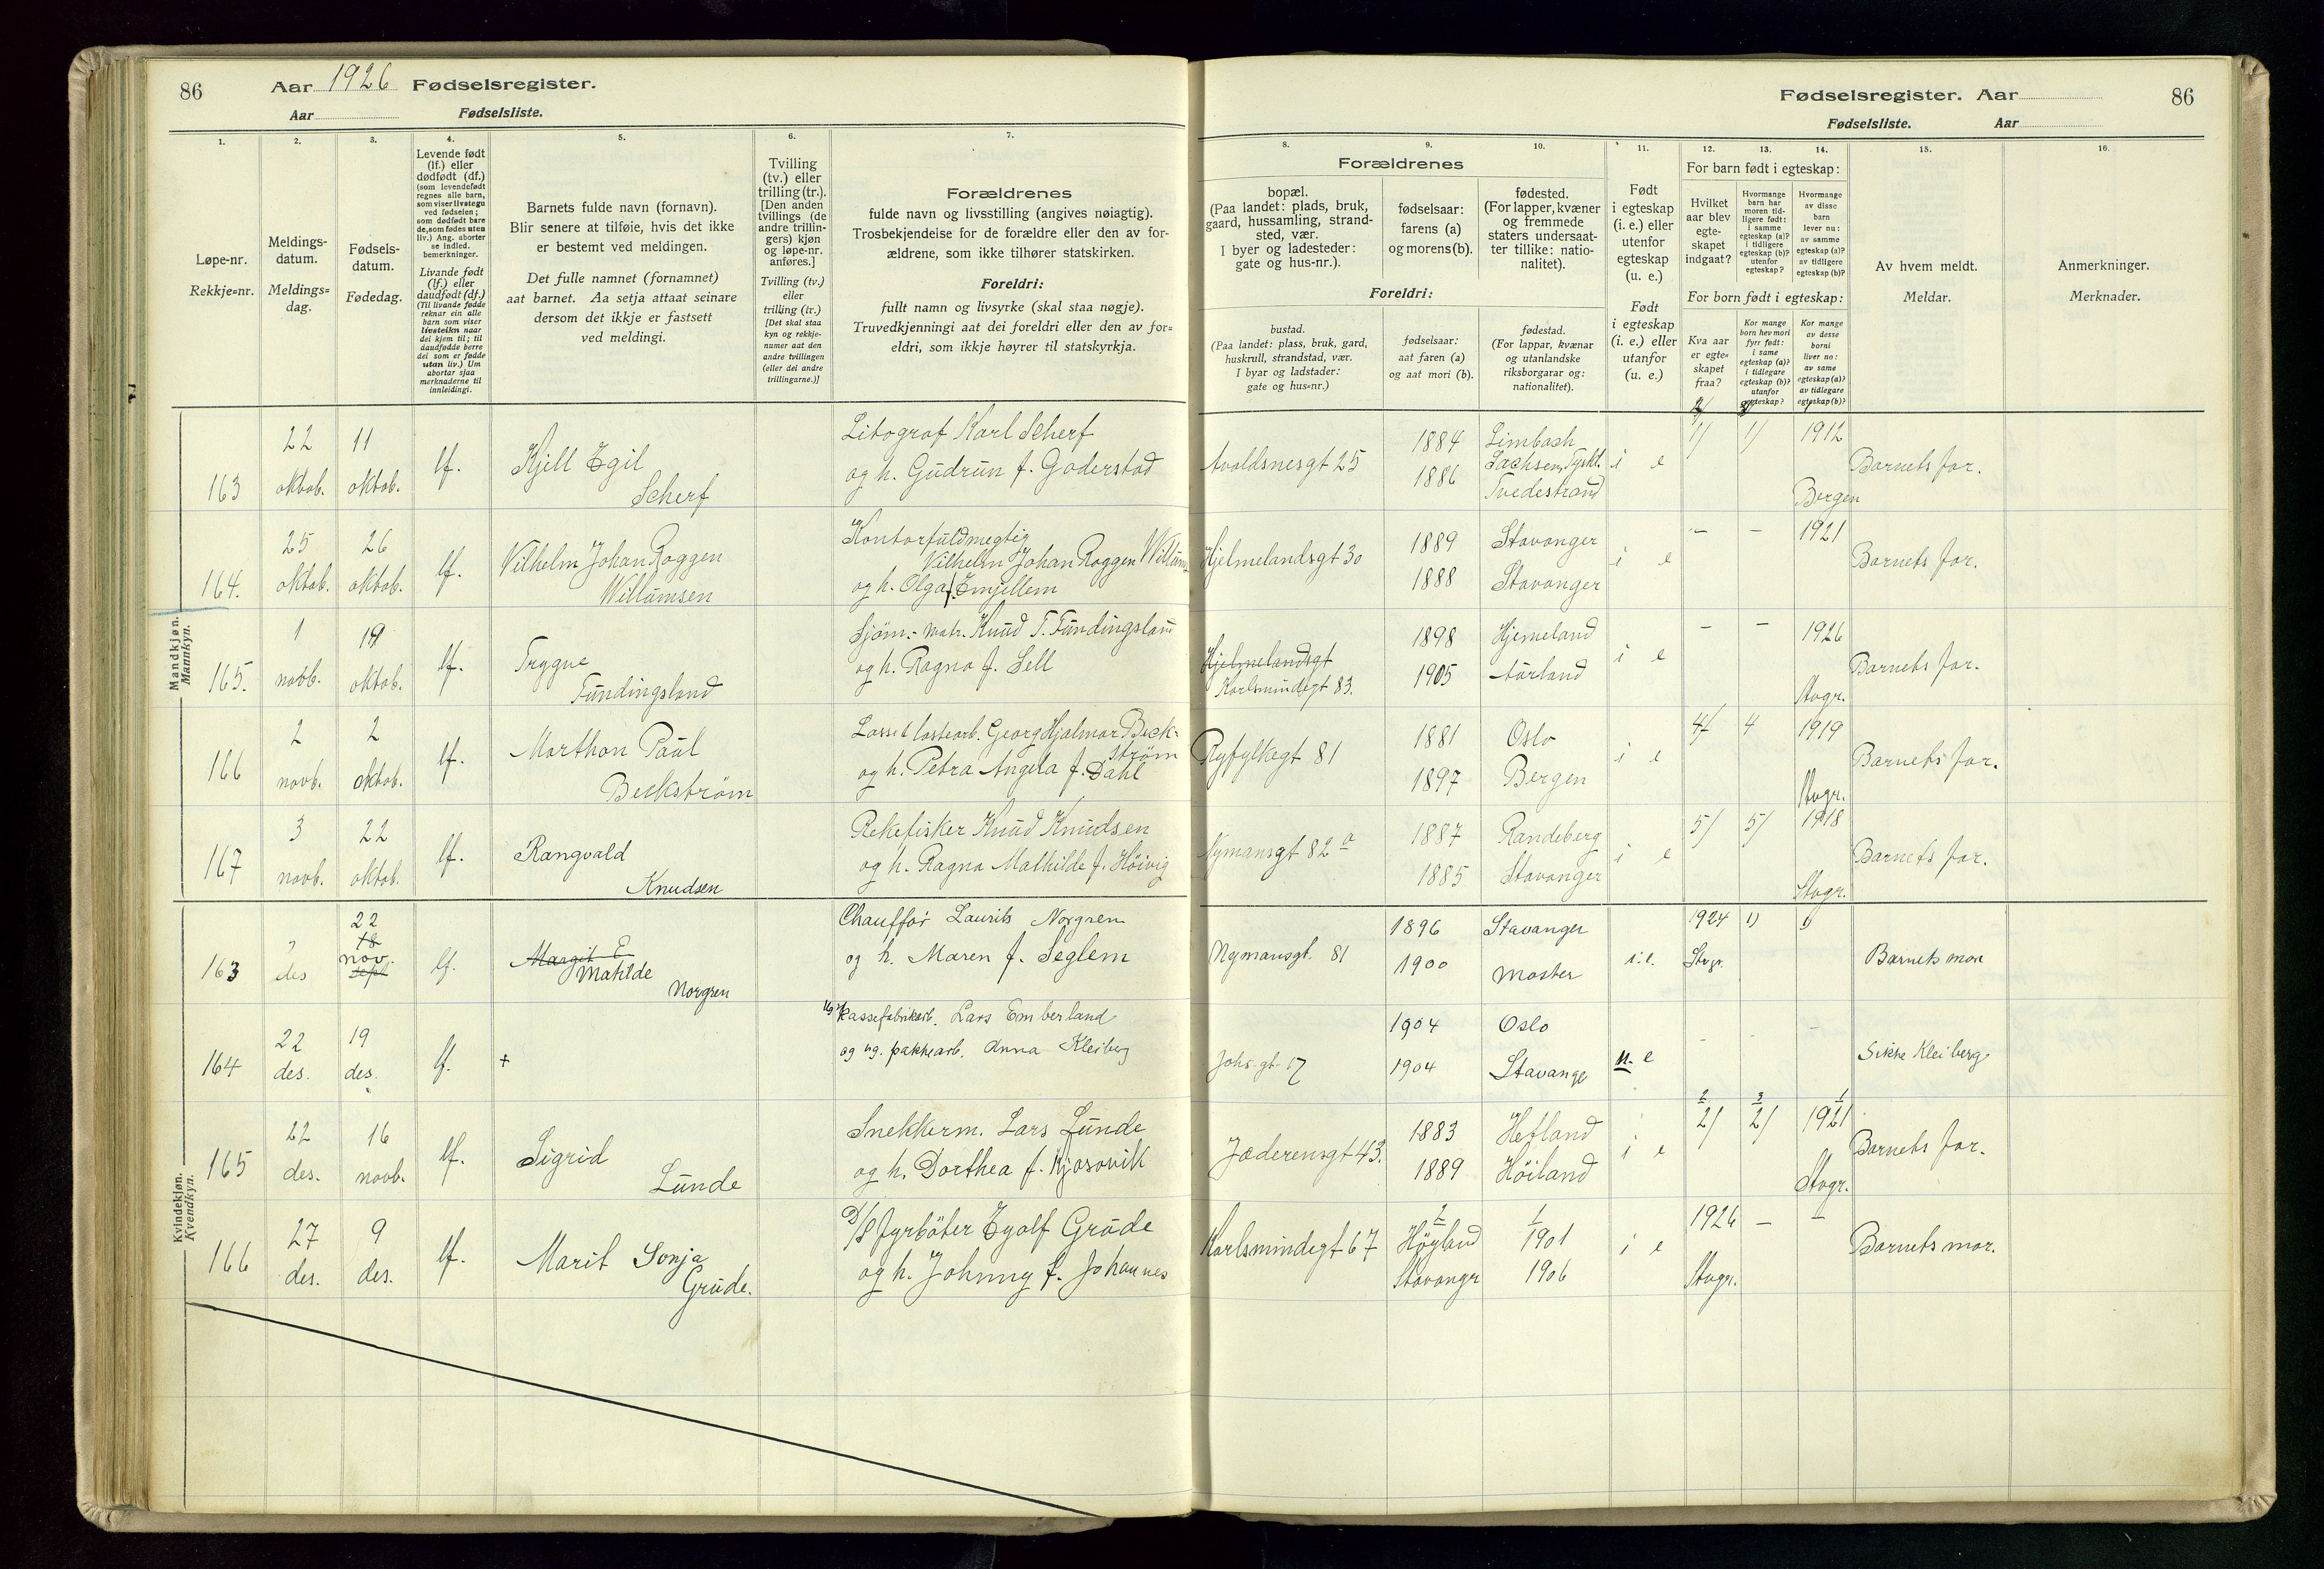 86
Aar 1926 Fødselsregister.
Aar Fødselsliste.
1. 2. 3. 4. 5. 6. 7.
Løpe-nr.
Rekkje=nr.
Meldings-
datum.
Meldings=
dag.
Fødsels-
datum.
Fødedag.
Levende født
(lf.) eller
dødfødt (df.)
(som levendefødt
regnes alle barn,
som viser livstegn
ved fødselen;
som dødfødt bare
de, som fødes uten
liv.) Ang. aborter
se indled.
bemerkninger.
Livande født
(lf.) eller
daudfødt (df.)
(Til livande fødde
reknar ein alle
barn som viser
livsteikn naar
dei kjem til; til
daudfødde berre
dei som er fødde
utan liv.) Um
abortar sjaa
merknaderne til
innleidingi.
Barnets fulde navn (fornavn).
Blir senere at tilføie, hvis det ikke
er bestemt ved meldingen.
Det fulle namnet (fornamnet)
aat barnet. Aa setja attaat seinare
dersom det ikkje er fastsett
ved meldingi.
Tvilling
(tv.) eller
trilling (tr.).
[Den anden
tvillings (de
andre trillin-
gers) kjøn
og løpe-nr.
anføres.]
Tvilling (tv.)
eller
trilling (tr.)
[Det skal staa
kyn og rekkje-
numer aat den
andre tvillingen
(eller dei andre
trillingarne.)]
Forældrenes
fulde navn og livsstilling (angives nøiagtig).
Trosbekjendelse for de forældre eller den av for-
ældrene, som ikke tilhører statskirken.
Foreldri:
fullt namn og livsyrke (skal staa nøgje).
Truvedkjenningi aat dei foreldri eller den av for=
eldri, som ikkje høyrer til statskyrkja.
Mandkjøn.
Mannkyn.
163 22 oktob. 11 oktob. lf. Kjell Egil Scherf
Litograf Karl Scherf
og h. Gudrun f. Goderstad
164. 25 oktob. 26 oktob. lf. Vilhelm Johan Roggen Willumsen
Kontorfuldmegtig
Vilhelm Johan Roggen
og h. Olga f. Emjellem
165. 1 novb. oktob. lf. Trygve Fundingsland
Sjøm.- Matr. Knud T. Fundingsland
og h. Ragna f. Sell
166 2 novb. 2 oktob. lf. Morthon Paul Beckström
Losse & lastearb. Georg Hjalmar Beck-
ström
og h. Petra Angela f. Dahl
167 3 novb. 22 oktob. lf. Rangvald Knudsen
Rekefisker Knud Knudsen
og h. Ragna Mathilde f. Höivig
Kvindekjøn.
Kvendkyn.
163 des 22 18 nov. sept lf. Margit E Matilde Norgren
Chauffør Laurits Norgren
og h. Maren f. Seglem
164 22 des. 19 des. lf. +
Kassefabrikarb. Lars Emberland
og ug. pakkearb. Anna Kleiberg
165 22 des. 16 novb. lf. Sigrid Lunde
Snekkerm. Lars Lunde
og h. Dorthea f. Kjosavik
166 27 des. 9 des. lf. Marit Sonja Grude.
D/S fyrböter Egolf Grude
og h. Johnny f. Johannes
Fødselsregister. Aar 86
Fødselsliste. Aar
8. 9. 10. 11. 12. 13. 14. 15. 16.
Forældrenes
bopæl.
(Paa landet: plads, bruk,
gaard, hussamling, strand-
sted, vær.
I byer og ladesteder:
gate og hus-nr.).
fødselsaar:
farens (a)
og morens (b).
fødested.
(For lapper, kvæner
og fremmede
staters undersaat-
ter tillike: natio-
nalitet).
Foreldri:
bustad.
(Paa landet: plass, bruk, gard,
huskrull, strandstad, vær.
I byar og ladstader:
gate og hus=nr.)
fødselsaar:
aat faren (a)
og aat mori (b).
fødestad.
(For lappar, kvænar
og utanlandske
riksborgarar og:
nationalitet).
Født
i egteskap
(i. e.) eller
utenfor
egteskap
(u. e.)
Født
i egteskap
(i. e.) eller
utanfor
(u. e.)
For barn født i egteskap:
Hvilket
aar blev
egte-
skapet
indgaat?
Hvormange
barn har
moren tid-
ligere født:
i samme
egteskap (a)?
i tidligere
egteskap (b)?
utenfor
egteskap?
Hvormange
av disse
barn
lever nu:
av samme
egteskap (a)?
av tidligere
egteskap (b)?
For born født i egteskap:
Kva aar
er egte=
skapet
fraa?
Kor mange
born hev mori
fyrr født:
i same
egteskap (a)?
i tidlegare
egteskap (b)?
utanfor
egteskap?
Kor mange
av desse
borni
liver no:
av same
egteskap (a)?
av tidlegare
egteskap (b)?
Av hvem meldt.
Meldar.
Anmerkninger.
Merknader.
Avaldsnesgt 25 1884 1886 Limbach Sachsen, Tyskl. Tvedestrand i e 1/ 1/ 1912 Bergen Barnets far.
Hjelmelandsgt 30 1889 1888 Stavanger Stavanger i e - - 1921 Barnets far.
Hjelmelandsgt Karlsmindegt 83. 1898 1905 Hjemeland Aurland i e - - 1926 Stvgr. Barnets far.
Ryfylkegt 81 1881 1897 Oslo Bergen i e 4/ 4 1919 Stvgr. Barnets far.
Nymansgt 82 a 1887 1885 Randeberg Stavanger i e 5/ 5/ 1918 Stvgr. Barnets far.
Nymansgt. 81 1896 1900 Stavanger Moster i.e. 1924 Stvgr. 1) 1) Barnets mor
Johs.gt. 17 1904 1904 Oslo Stavange u. e - - - Sikke Kleiberg
Jæderensgt 43. 1883 1889 Hetland Höiland i e 2/ 2/ 1921 Stvgr. Barnets far.
Karlsmindegt 67 2 Höyland Stavangr 1 1901 1906 i e 1926 Stvgr. - - Barnets mor.